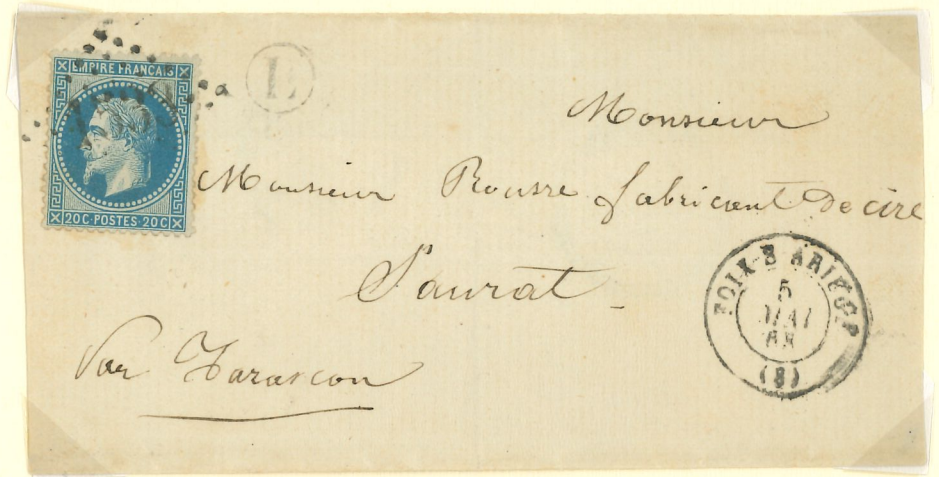 EMPIRE FRANÇAIS
20C·POSTES·20C
E
Monsieur
Monsieur Rousse fabricant de cire
Saurat
Par Tarascon
FOIX-E ARIEGE
5
MAI
68
(8)